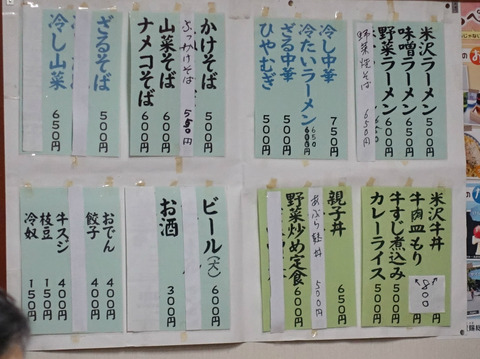 米沢ラーメン 500円
味噌ラーメン 650円
野菜ラーメン 600円
野菜焼そば 650円
冷し中華 750円
冷たいラーメン 650円
ざる中華 500円
ひやむぎ 500円
かけそば 500円
ぶっかけそば 550円
山菜そば 600円
ナメコそば 600円
ざるそば 500円
冷し山菜 650円
米沢牛丼
牛肉皿もり 800
牛すじ煮込み 500円
カレーライス 500円
親子丼 650円
あぶら麩丼 500円
野菜炒め定食 600円
ビール(大) 600円
お酒 300円
おでん 400円
餃子 400円
牛スジ 400円
枝豆 150円
冷奴 150円